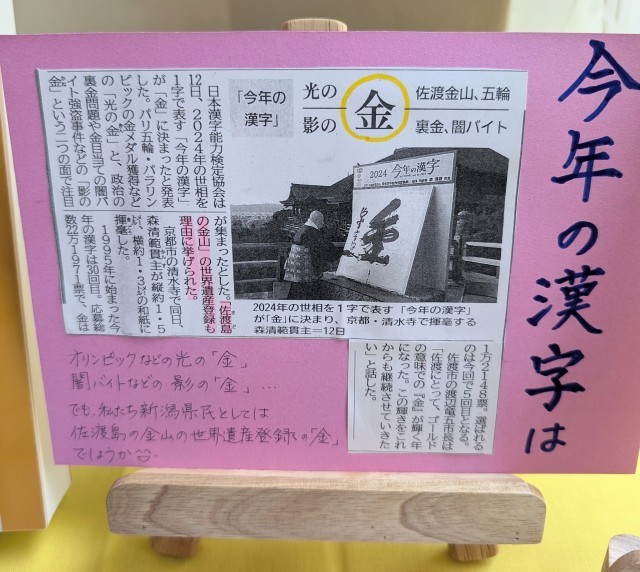 今年の漢字は
「今年の
漢字」
光の
影の
金
佐渡金山、五輪
裏金、闇バイト
日本漢字能力検定協会は
12日、2024年の世相を
1字で表す「今年の漢字」
が「金」に決まったと発表
した。パリ五輪・パラリン
ピックの金メダル獲得など
の「光の金」と、政治の
裏金問題や金目当ての闇バ
イト強盗事件などの「影の
金」という二つの面で注目
が集まったとした。「佐渡島
の金山」の世界遺産登録も
理由に挙げられた。
京都市の清水寺で同日、
森清範貫主が縦約1・5
㍍、横約1・3㍍の和紙に
揮毫した。
1995年に始まった今
年の漢字は30回目。応募総
数22万1971票で、金は
2024 今年の漢字
金
2024年の世相を1字で表す「今年の漢字」
が「金」に決まり、京都・清水寺で揮毫する
森清範貫主＝12日
1万2148票。選ばれる
のは今回で5回目となる。
佐渡市の渡辺竜五市長は
「佐渡にとって、ゴールド
の意味での『金』が輝く年
になった。この輝きをこれ
からも継続させていきた
い」と話した。
オリンピックなどの光の「金」
闇バイトなどの影の「金」…
でも、私たち新潟県民としては
佐渡島の金山の世界遺産登録の「金」
でしょうか